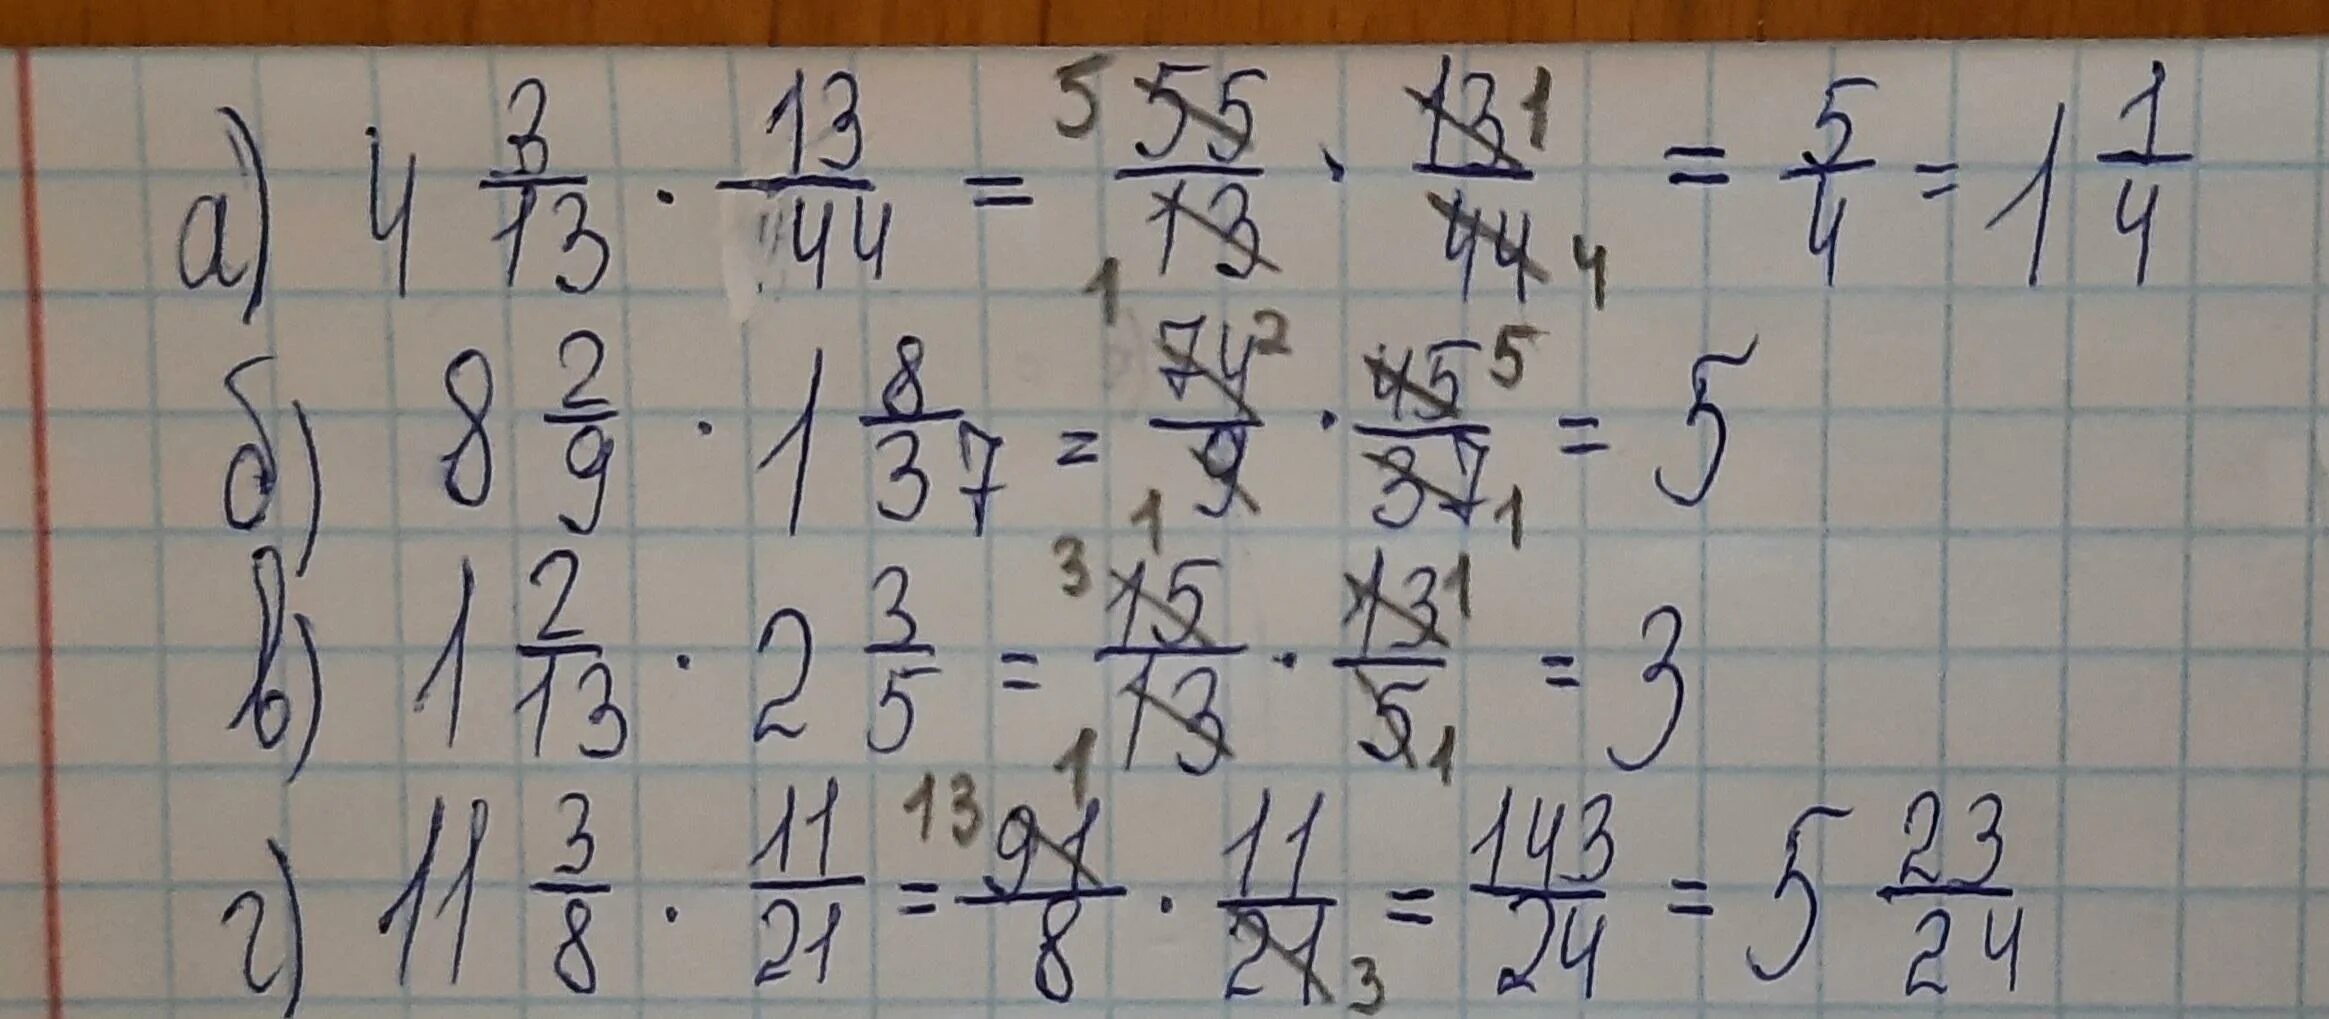 а) 4 3/13 · 13/44 = 5 55/13 1 · 13 1/44 4 = 5/4 = 1 1/4
б) 8 2/9 · 1 8/37 = 74 2/9 1 · 45 5/37 1 = 5
в) 1 2/13 · 2 3/5 = 3 15/13 1 · 13 1/5 1 = 3
г) 11 3/8 · 11/21 = 13 91/8 · 11/21 3 = 143/24 = 5 23/24